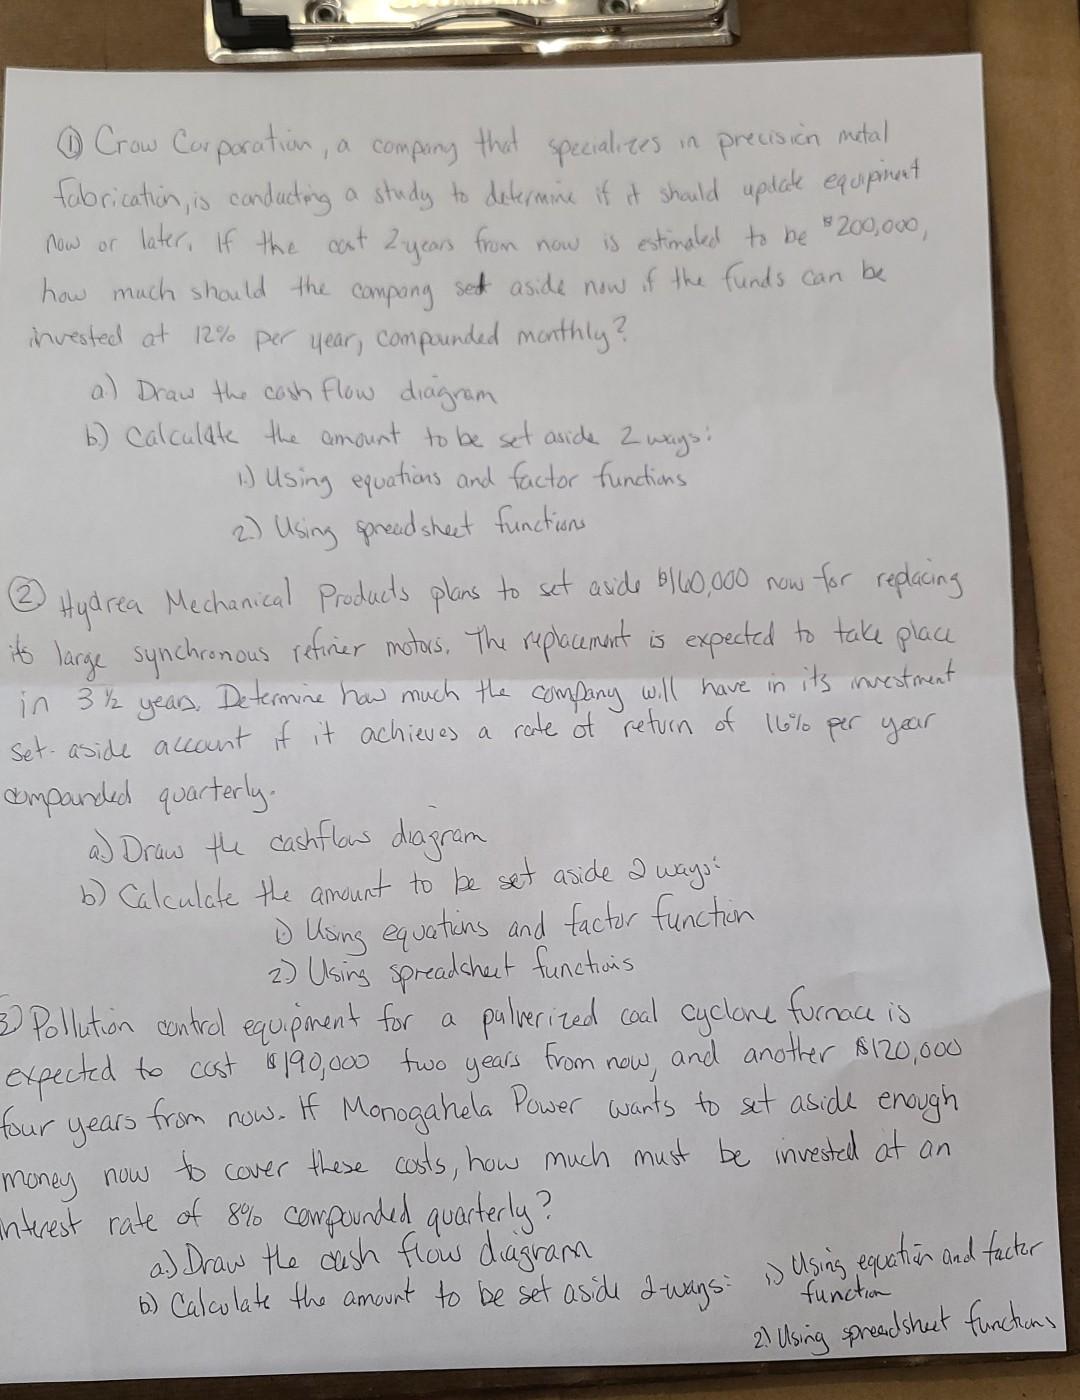 ① Crow Corporation, a company that specializes in precision metal
fabrication, is conducting a study to determine if it should update equipment
now or later. If the cost 2 years from now is estimated to be $200,000,
how much should the company set aside now if the funds can be
invested at 12% per year, compounded monthly?
a.) Draw the cash flow diagram
b.) Calculate the amount to be set aside 2 ways:
1.) Using equations and factor functions
2.) Using spreadsheet functions
② Hydrea Mechanical Products plans to set aside $160,000 now for replacing
its large synchronous refiner motors. The replacement is expected to take place
in 3 ½ years. Determine how much the company will have in its investment
set-aside account if it achieves a rate of return of 16% per year
compounded quarterly.
a) Draw the cashflow diagram
b) Calculate the amount to be set aside 2 ways:
1) Using equations and factor function
2) Using spreadsheet functions
3) Pollution control equipment for a pulverized coal cyclone furnace is
expected to cost $190,000 two years from now, and another $120,000
four years from now. If Monogahela Power wants to set aside enough
money now to cover these costs, how much must be invested at an
interest rate of 8% compounded quarterly?
a.) Draw the cash flow diagram
b) Calculate the amount to be set aside 2-ways: 1) Using equation and factor
function
2) Using spreadsheet functions